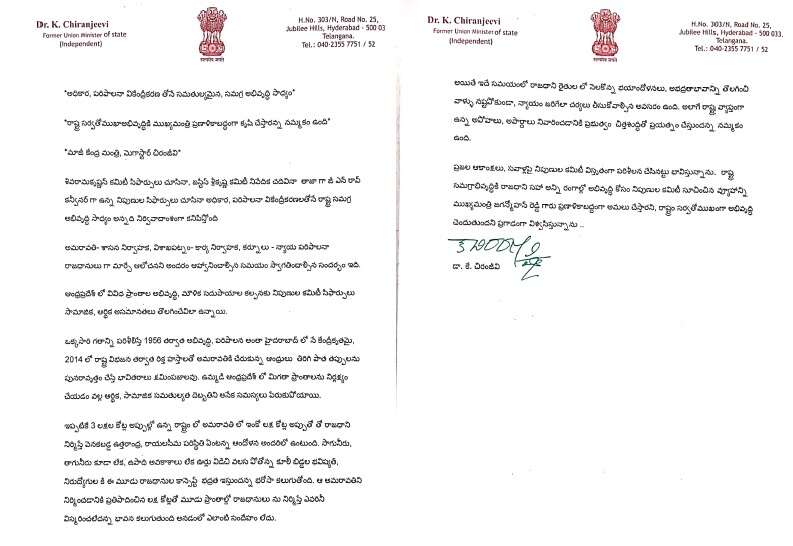 Dr. K. Chiranjeevi
Former Union Minister of state
(Independent)
सत्यमेव जयते
H.No. 303/N, Road No. 25,
Jubilee Hills, Hyderabad - 500 033
Telangana.
Tel.: 040-2355 7751 / 52
"అధికార, పరిపాలనా వికేంద్రీకరణ తోనే సమతుల్యమైన, సమగ్ర అభివృద్ధి సాధ్యం"
"రాష్ట్ర సర్వతోముఖాభివృద్ధికి ముఖ్యమంత్రి ప్రణాళికాబద్ధంగా కృషి చేస్తారన్న నమ్మకం ఉంది"
"మాజీ కేంద్ర మంత్రి, మెగాస్టార్ చిరంజీవి"
శివరామకృష్ణన్ కమిటీ సిఫార్సులు చూసినా, జస్టిస్ శ్రీకృష్ణ కమిటీ నివేదిక చదివినా తాజా గా జీ ఎన్ రావ్
కన్వీనర్ గా ఉన్న నిపుణుల సిఫార్సులు చూసినా అధికార, పరిపాలనా వికేంద్రీకరణలతోనే రాష్ట్ర సమగ్ర
అభివృద్ధి సాధ్యం అన్నది నిర్వివాదాంశంగా కనిపిస్తోంది
అమరావతి- శాసన నిర్వాహక, విశాఖపట్నం- కార్య నిర్వాహక, కర్నూలు - న్యాయ పరిపాలనా
రాజధానులు గా మార్చే ఆలోచనని అందరం ఆహ్వానించాల్సిన సమయం స్వాగతించాల్సిన సందర్భం ఇది.
ఆంధ్రప్రదేశ్ లో వివిధ ప్రాంతాల అభివృద్ధి, మౌళిక సదుపాయాల కల్పనకు నిపుణుల కమిటీ సిఫార్సులు
సామాజిక, ఆర్థిక అసమానతలు తొలగించేవిలా ఉన్నాయి.
ఒక్కసారి గతాన్ని పరిశీలిస్తే 1956 తర్వాత అభివృద్ధి, పరిపాలన అంతా హైదరాబాద్ లో నే కేంద్రీకృతమై,
2014 లో రాష్ట్ర విభజన తర్వాత రిక్త హస్తాలతో అమరావతికి చేరుకున్న ఆంధ్రులు తిరిగి పాత తప్పులను
పునరావృత్తం చేస్తే భావితరాలు క్షమించజాలవు. ఉమ్మడి ఆంధ్రప్రదేశ్ లో మిగతా ప్రాంతాలను నిర్లక్ష్యం
చేయడం వల్ల ఆర్థిక, సామాజిక సమతుల్యత దెబ్బతిని అనేక సమస్యలు ఏరుకుపోయాయి.
ఇప్పటికే 3 లక్షల కోట్ల అప్పుల్లో ఉన్న రాష్ట్రం లో అమరావతి లో ఇంకో లక్ష కోట్ల అప్పుతో తో రాజధాని
నిర్మిస్తే వెనకబడ్డ ఉత్తరాంధ్ర, రాయలసీమ పరిస్థితి ఏంటన్న ఆందోళన అందరిలో ఉంటుంది. సాగునీరు,
తాగునీరు కూడా లేక, ఉపాధి అవకాశాలు లేక ఊర్లు విడిచి వలస పోతోన్న కూలీ బిడ్డల భవిష్యత్,
నిరుద్యోగుల కి ఈ మూడు రాజధానుల కాన్సెప్ట్ భద్రత ఇస్తుందన్న భరోసా కలుగుతోంది. ఆ అమరావతిని
నిర్మించడానికి ప్రతిపాదించిన లక్ష కోట్లతో మూడు ప్రాంతాల్లో రాజధానులు ను నిర్మిస్తే ఎవరినీ
విస్మరించలేదన్న భావన కలుగుతుంది అనడంలో ఎలాంటి సందేహం లేదు.
Dr. K. Chiranjeevi
Former Union Minister of state
(Independent)
सत्यमेव जयते
H.No. 303/N, Road No. 25,
Jubilee Hills, Hyderabad - 500 033
Telangana.
Tel.: 040-2355 7751 / 52
అయితే ఇదే సమయంలో రాజధాని రైతుల లో నెలకొన్న భయాందోళనలు, అభద్రతాభావాన్ని తొలగించి
వాళ్ళు నష్టపోకుండా, న్యాయం జరిగేలా చర్యలు తీసుకోవాల్సిన అవసరం ఉంది. అలాగే రాష్ట్ర వ్యాప్తంగా
ఉన్న అపోహలు, అపార్థాలు నివారించడానికి ప్రభుత్వం చిత్తశుద్ధితో ప్రయత్నం చేస్తుందన్న నమ్మకం
ఉంది.
ప్రజల ఆకాంక్షలు, సవాళ్లపై నిపుణుల కమిటీ విస్తృతంగా పరిశీలన చేసినట్టు భావిస్తున్నాను. రాష్ట్ర
సమగ్రాభివృద్ధికి రాజధాని సహా అన్ని రంగాల్లో అభివృద్ధి కోసం నిపుణుల కమిటీ సూచించిన వ్యూహాన్ని
ముఖ్యమంత్రి జగన్మోహన్ రెడ్డి గారు ప్రణాళికాబద్దంగా అమలు చేస్తారని, రాష్ట్రం సర్వతోముఖంగా అభివృద్ధి
చెందుతుందని ప్రగాఢంగా విశ్వసిస్తున్నాను ..
డా. కే. చిరంజీవి